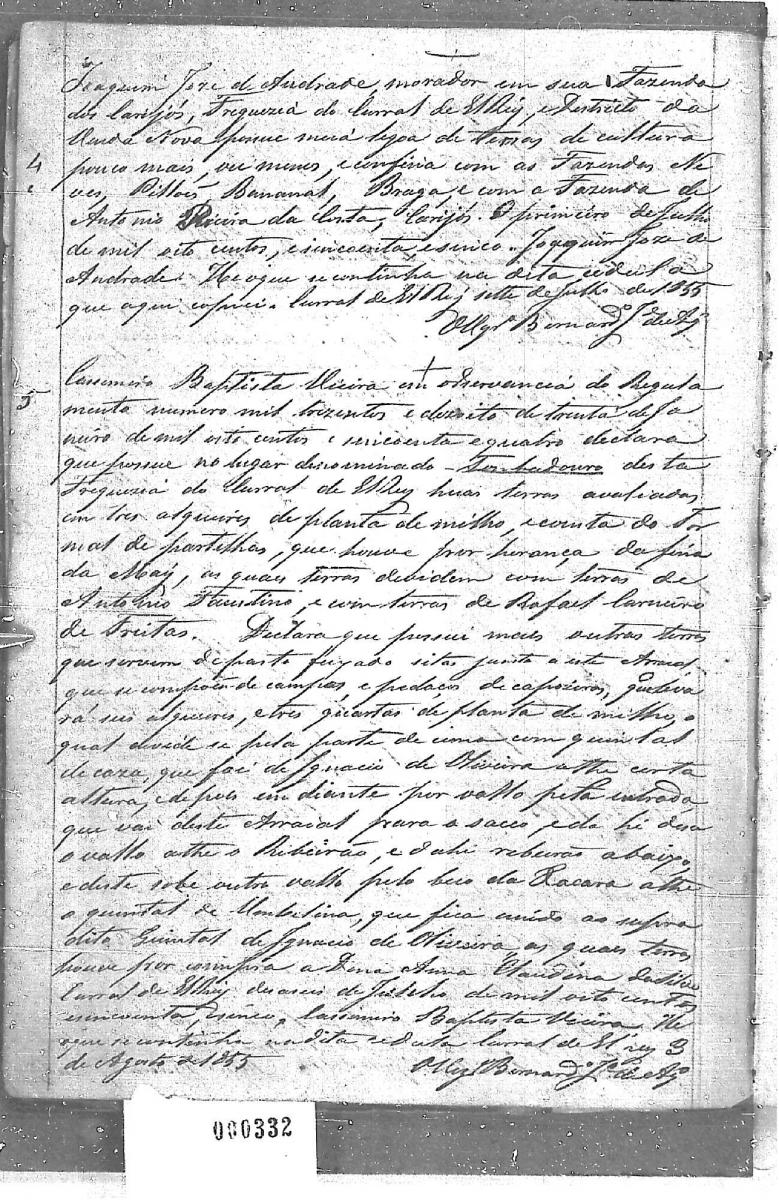 Joaquim Joze de Andrade, morador em sua Fazenda
dos Carijós, Freguezia do Curral de El Rey, e Districto da
Venda Nova possue meia legoa de terras de cultura
4 pouco mais, ou menos, e confina com as Fazendas Ne
ves, Pilloẽs Bananal, Braga, e com a Fazenda de
Antonio da Costa, Carijós. O primeiro de Julho
de mil oito centos, e sincoenta, e sinco. Joaquim Joze de
Andrade. He o que se continha na dita cedula
que aqui copiei. Curral de El Rey sette de Julho de 1855
O Vigr.º Bernard.º Je. de Aq.º
5 Cassemiro Baptista Vieira em observancia do Regula
mento numero mil trezentos e dezoito de trenta de Ja
neiro de mil oito centos e sincoenta e quatro declara
que possue no lugar denominado - Tombadouro desta
Freguezia do Curral de El Rey huas terras avaliadas
em tres alqueires de planta de milho, e consta do For
mal de partilhas, que houve por herança da fina
da Maỹ, as quais terras devidem com terras de
Antonio Faustino, e com terras de Rafael Carneiro
de Freitas. Declara que possui mais outras terras
que servem de pasto feixado sitas junto a este Arraial
que se compoẽ de campos, e pedaços de capoeiros, que leva
rá seis alqueires, e tres quartas de planta de milho, o
qual devide se pela parte de cima com quintal
de caza, que foi de Ignacio de Oliveira athe certa
altura, e depois em diante por vallo pela entrada
que vai deste Arraial para o sacco, e da hi desa
o vallo athe o Ribeirão, e dahi rebeirão abaixo,
e deste sobe outro vallo pelo beco da Xacara athe
o quintal de Umbelina, que fica unido ao supra
dito Quintal de Ignacio de Oliveira, as quais terras
houve por compra a Dona Anna Claudina da Silva
Curral de El Rey deseseis de Julho de mil oito centos
e sincoenta, e sinco, Cassemiro Baptista Vieira He
o que se continha na dita cedula Curral de El rey 3
de Agosto de 1855 O Vigr.º Bernard.º Je. de Aq.º
000332